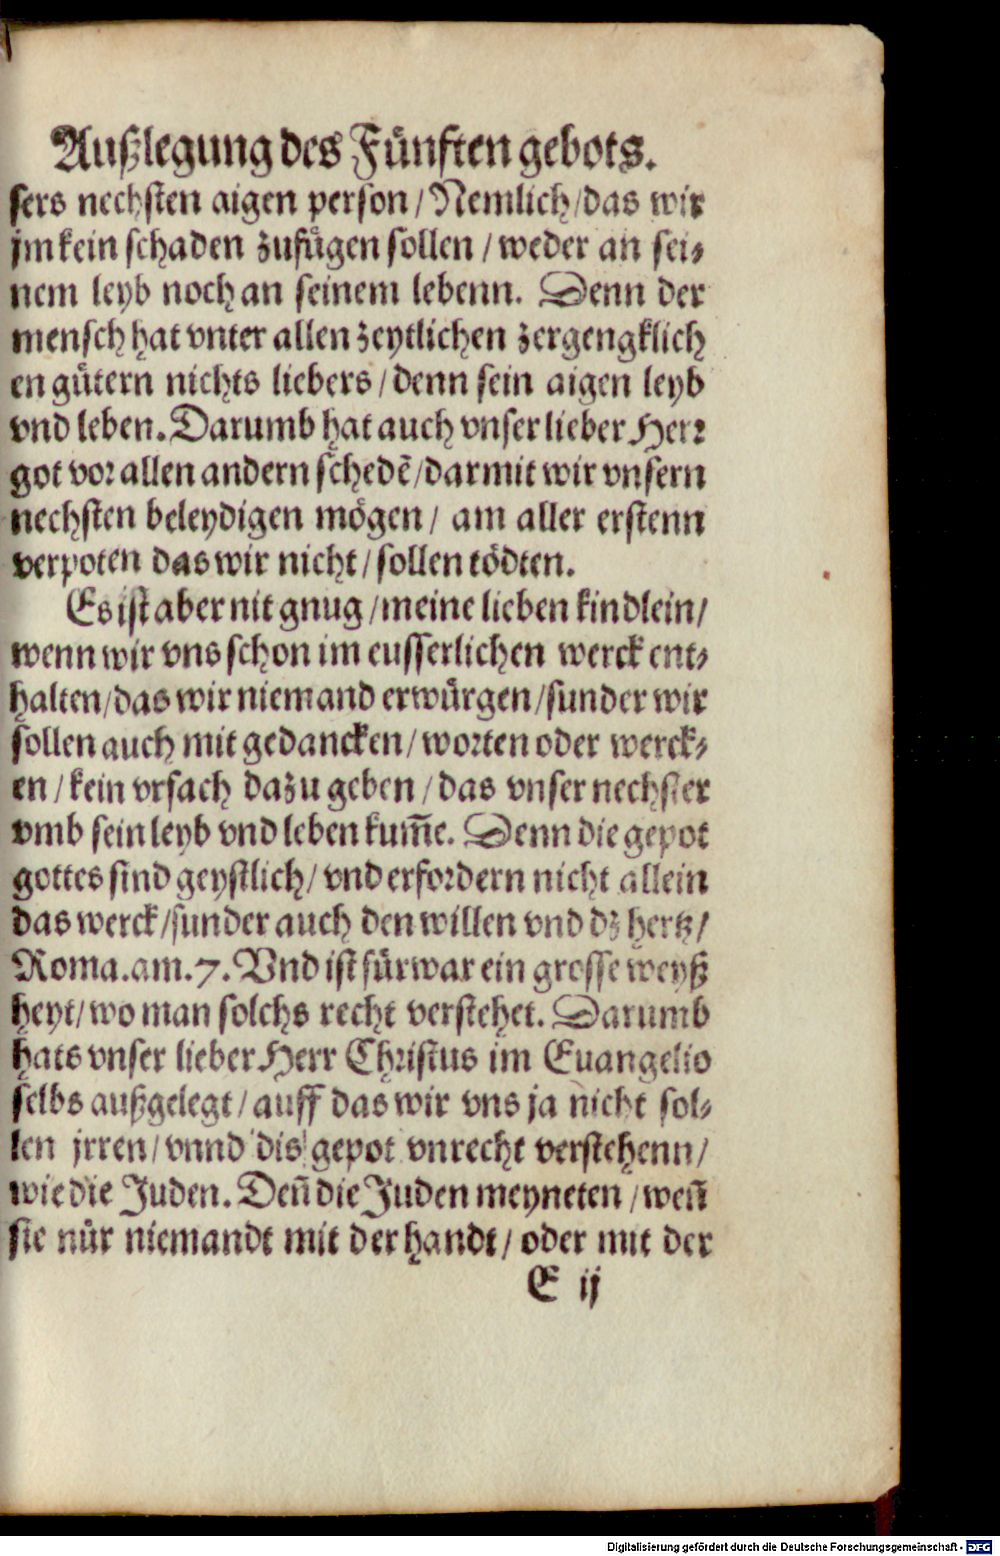 Außlegung des Fünften gebots.
sers nechsten aigen person / Nemlich / das wir
jm kein schaden zufügen sollen / weder an sei⸗
nem leyb noch an seinem lebenn. Denn der
mensch hat vnter allen zeytlichen zergengklich
en gütern nichts liebers / denn sein aigen leyb
vnd leben. Darumb hat auch vnser lieber Herr
got vor allen andern schedē / darmit wir vnsern
nechsten beleydigen mögen / am aller erstenn
verpoten das wir nicht / sollen tödten.
Es ist aber nit gnug / meine lieben kindlein /
wenn wir vns schon im eusserlichen werck ent⸗
halten / das wir niemand erwürgen / sunder wir
sollen auch mit gedancken / worten oder werck⸗
en / kein vrsach dazu geben / das vnser nechster
vmb sein leyb vnd leben kum̄e. Denn die gepot
gottes sind geystlich / vnd erfordern nicht allein
das werck / sunder auch den willen vnd dz hertz /
Roma. am. 7. Vnd ist fürwar ein grosse weyß
heyt / wo man solchs recht verstehet. Darumb
hats vnser lieber Herr Christus im Euangelio
selbs außgelegt / auff das wir vns ja nicht sol⸗
len jrren / vnnd dis gepot vnrecht verstehenn /
wie die Juden. Den̄ die Juden meyneten / wen̄
sie nür niemandt mit der handt / oder mit der
E ij
Digitalisierung gefördert durch die Deutsche Forschungsgemeinschaft - DFG